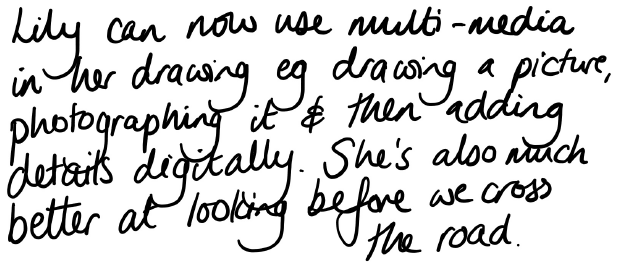 Lily can now use multi-media
in her drawing eg drawing a picture,
photographing it & then adding
details digitally. She's also much
better at looking before we cross
the road.